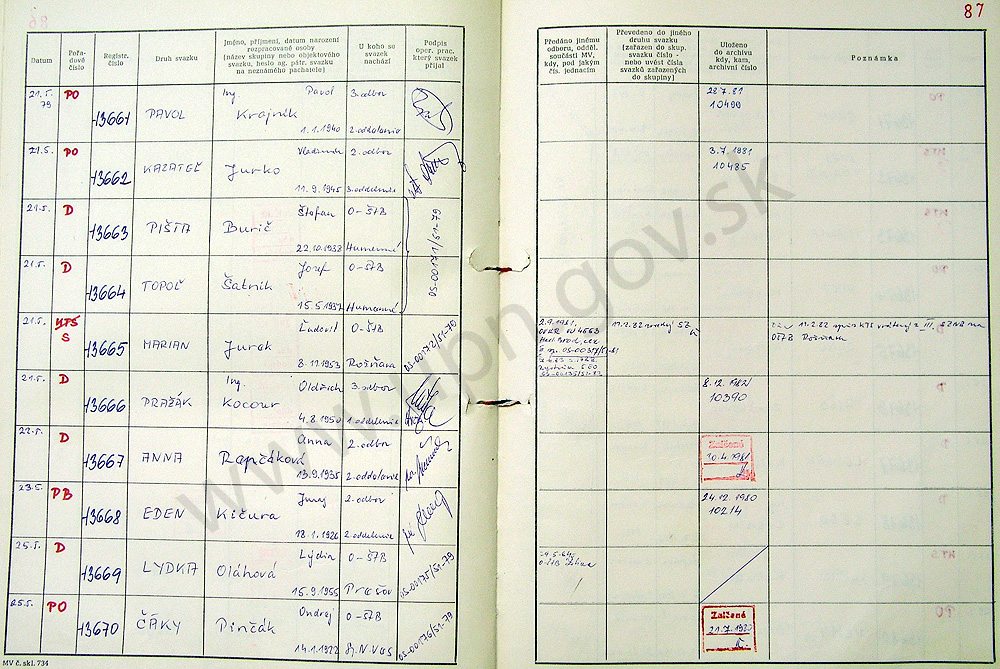 86
Datum
Pořadové číslo
Registr. číslo
Druh svazku
Jméno, příjmení, datum narození rozpracované osoby (název skupiny nebo objektového svazku, heslo ag. pátr. svazku na neznámého pachatele)
U koho se svazek nachází
Podpis oper. prac. který svazek přijal
21.5. 79 PO 13661 PAVOL Ing Pavol Krajník 1.1.1940 3. odbor 2. oddelenie
21.5. PO 13662 KAZATEĽ Vladimír Jurko 11.9.1945 2. odbor 3. oddelenie
21.5. D 13663 PIŠTA Štefan Burič 22.10.1938 O-ŠTB Humenné
05-00171/51-79
21.5. D 13664 TOPOĽ Jozef Šatník 15.5.1937 O-ŠTB Humenné
21.5. KTS S 13665 MARIAN Ľudovít Jurak 8.11.1953 O-ŠTB Rožňava
21.5. D 13666 PRAŽÁK Ing. Oldřich Kocour 4.8.1950 3. odbor 1. oddelenie
22.5. D 13667 ANNA Anna Rapčáková 13.9.1935 2. odbor 2. oddelenie
23.5. PB 13668 EDEN Juraj Kičura 18.1.1926 2. odbor 2. oddelenie
25.5. D 13669 LYDKA Lýdia Oláhová 15.9.1955 O-ŠTB Prešov 05-00175/51-79
25.5. PO 13670 ČÁKY Ondrej Pinčák 14.1.1922 O-ŠTB Sp. N. Ves 05-00176/51-79
MV č. skl. 734
87
Předáno jinému odboru, odděl. součásti MV, kdy, pod jakým čís. jednacím
Převedeno do jiného druhu svazku (zařazen do skup. svazku číslo - nebo uvést čísla svazků zařazených do skupiny)
Uloženo do archivu kdy, kam, archivní číslo
Poznámka
28.7.81
10490
3.7.1981
10485
2.9.1981
11.2.82
8.12.1982
10390
Zničené
10.4.1981
24.12.1980
10214
Zničené
www.upn.gov.sk